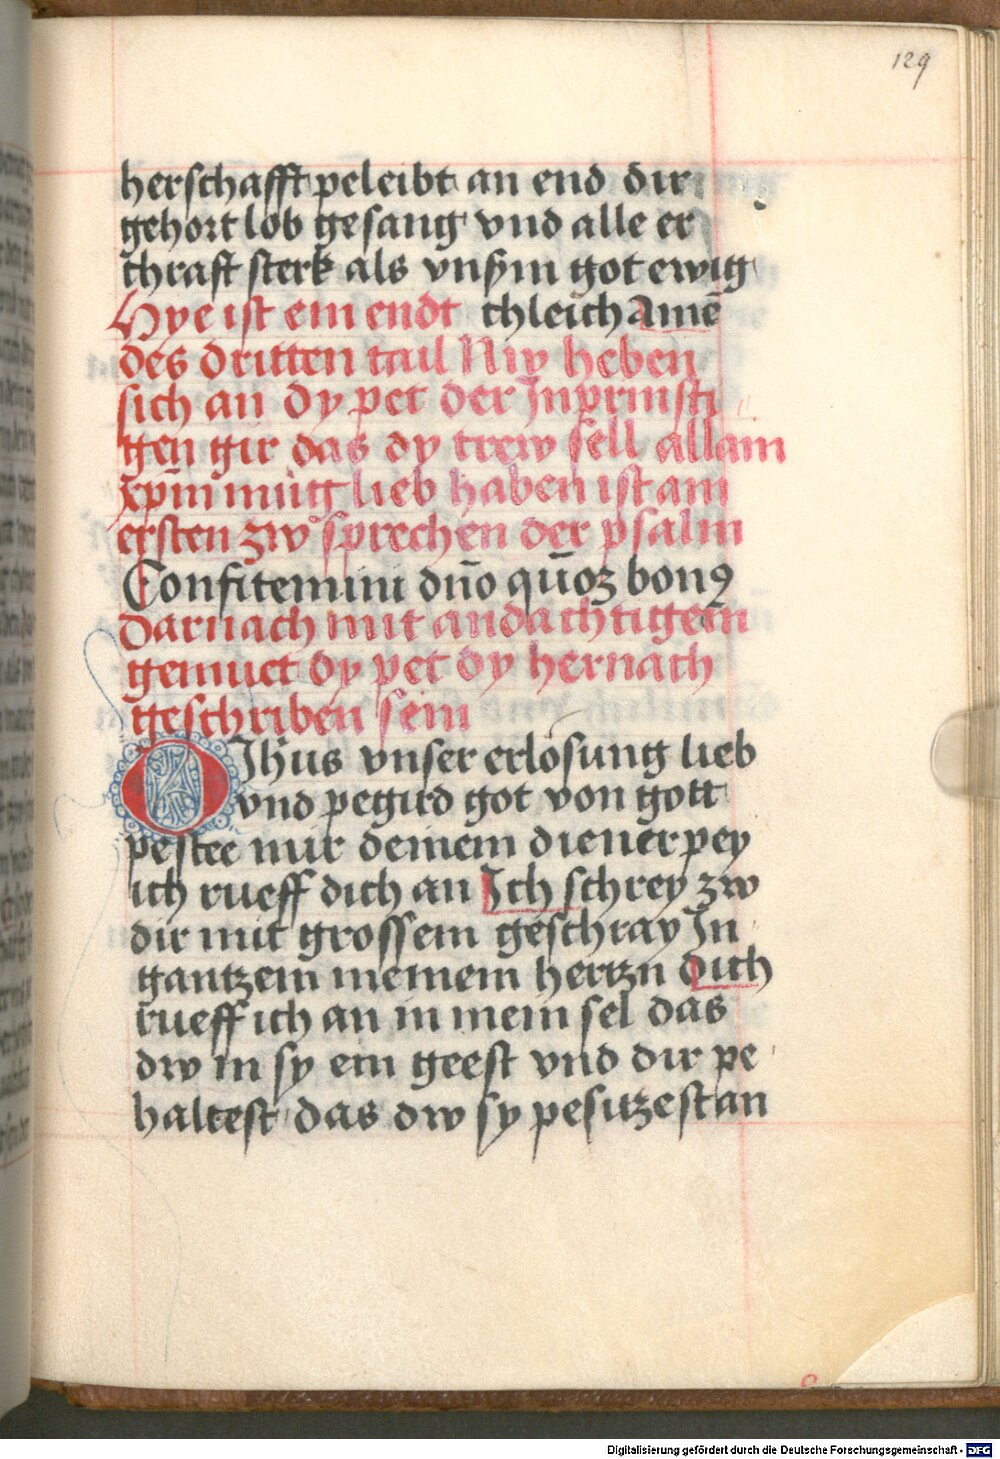 129
herschafft peleibt an end dir
gehort lob gesang vnd alle er
chraft sterk als vnsym got ewig
Hye ist ein endt chleich Amē
des dritten tail Niy heben
sich an dy pet der Inprinsti
gen gir das dy trew sell allain
xpm̄ mug lieb haben ist am
ersten zwͦ sprechen der psalm
Confitemini dn̄o qn̄oꝫ bonꝰ
darnach mit andachtigem
gemuet dy pet dy hernach
geschriben sein
O Jhūs vnser erlosung lieb
vnd pegird got von gott
pestee mir deinem diener pey
ich rueff dich an Ich schrey zw
dir mit grossem geschray In
gantzem meinem hertzn dich
rueff ich an in mein sel das
dw in sy ein geest vnd dir pe
haltest das dw sy pesitzest an
Digitalisierung gefördert durch die Deutsche Forschungsgemeinschaft - DFG